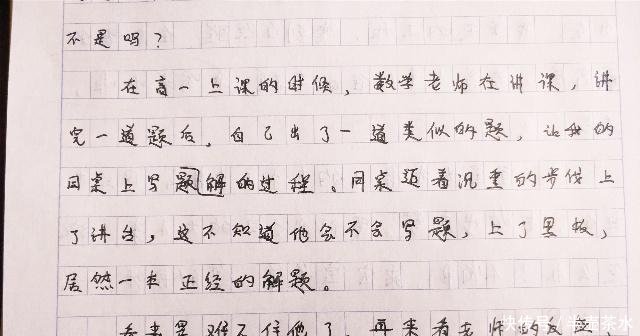 不是吗？
在高一上课的时候，数学老师在讲课，讲
完一道题后，自己出了一道类似的题，让我的
同桌上写题解的过程。同桌迈着沉重的步伐上
了讲台，这不知道他会不会写题，上了黑板，
居然一本正经的解题。
看来是难不住他了，再来看老师的反应，
快传号／
茶水